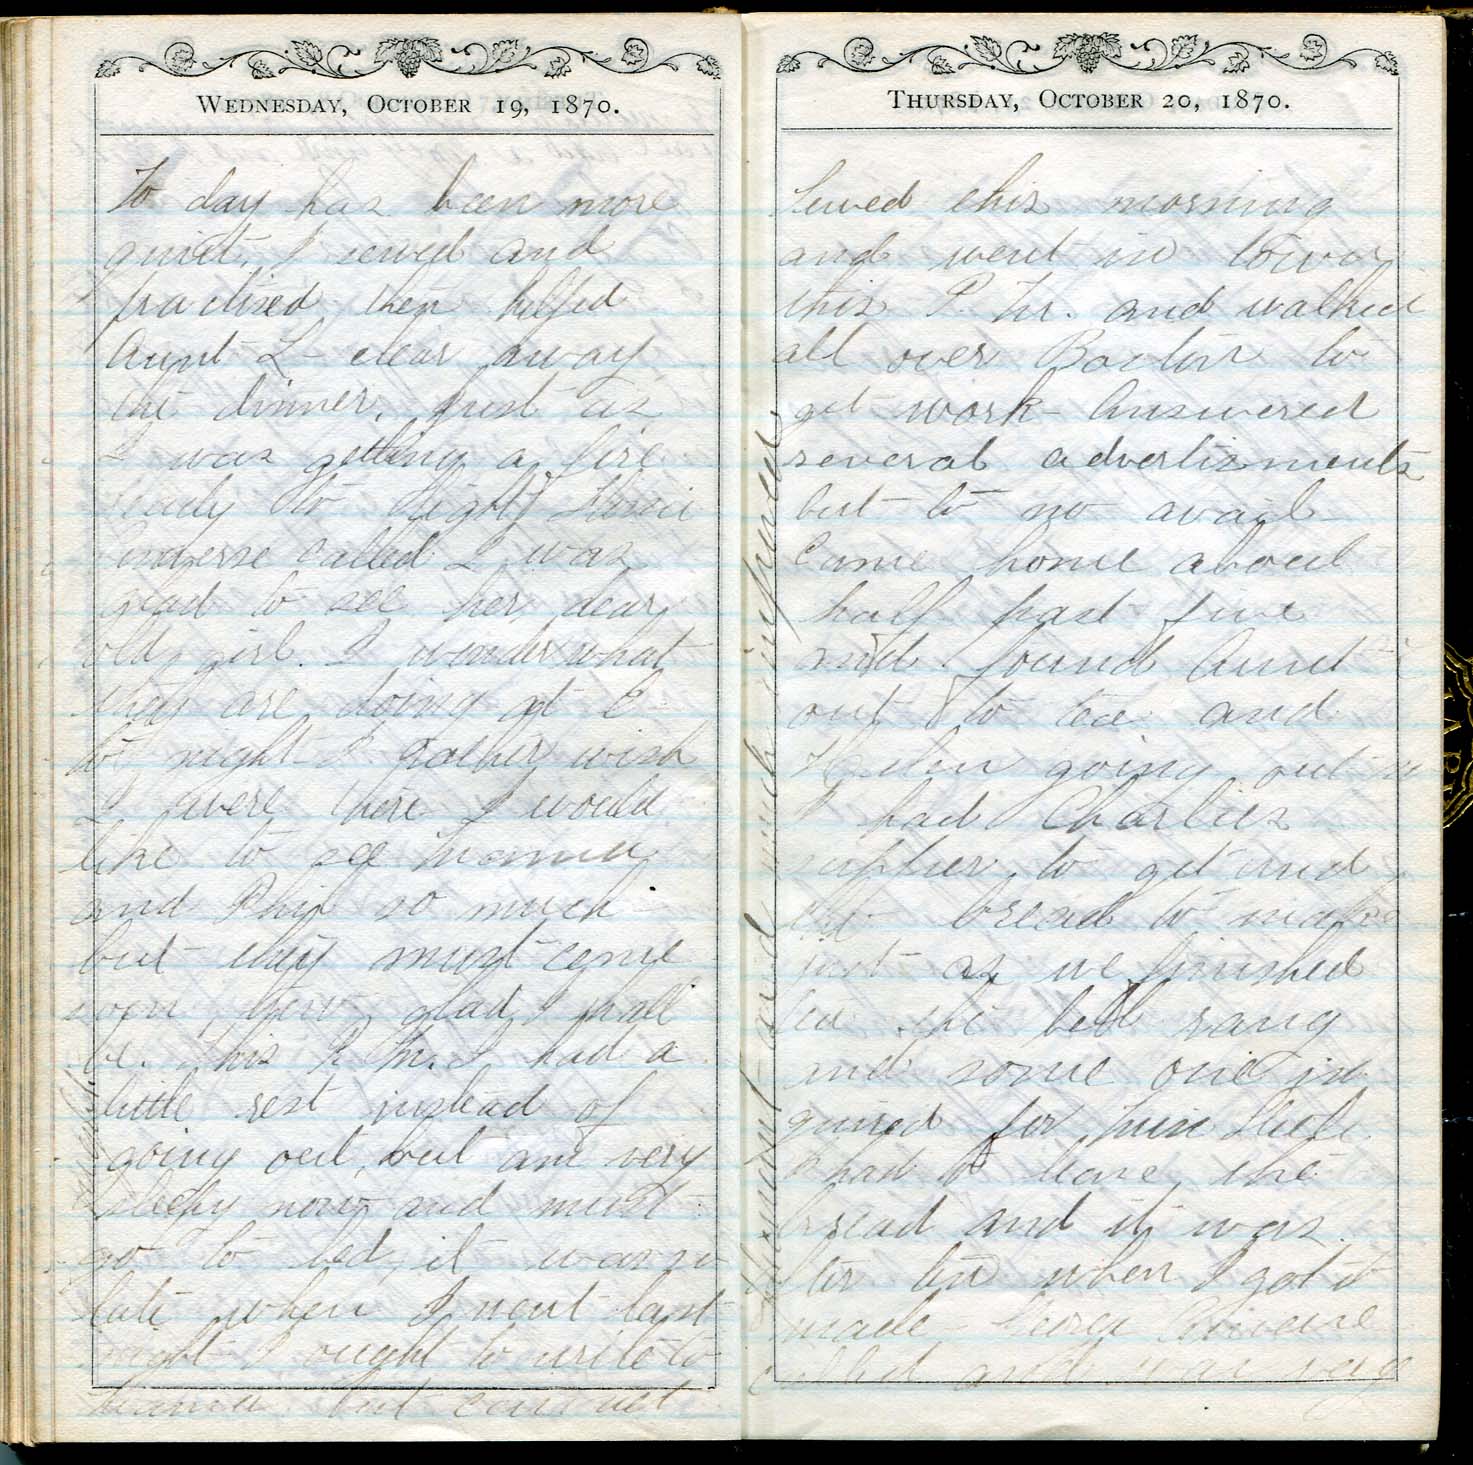 WEDNESDAY, OCTOBER 19, 1870.
To day has been more
quiet. I sewed and
practised then helped
Aunt L- clear away
the dinner. Just as
I was getting a fire
ready to light,
Converse called I was
glad to see her dear
old girl. I wonder what
they are doing at C-
to night- I rather wish
I were there I would
like to see Mamma
and Phip so much-
but they must come
soon, how glad I shall
be. This P. M. I had a
little rest instead of
going out, but am very
sleepy now and must
go to bed, it was so
late when I went last
night- I ought to write to
Mama but can not
THURSDAY, OCTOBER 20, 1870.
Sewed this morning
and went in town
this P. M. and walked
all over Boston to
get work- Answered
several advertisments
but to no avail-
Came home about
half past five
and found Aunt
out to tea and
going out
I had Charlies
supper to get and
bread to make
just as we finished
tea the bell rang
and some one in
quired for Miss
I had to leave the
bread and it was
ten when I got it
made-
called and was very
pleasant and much improved